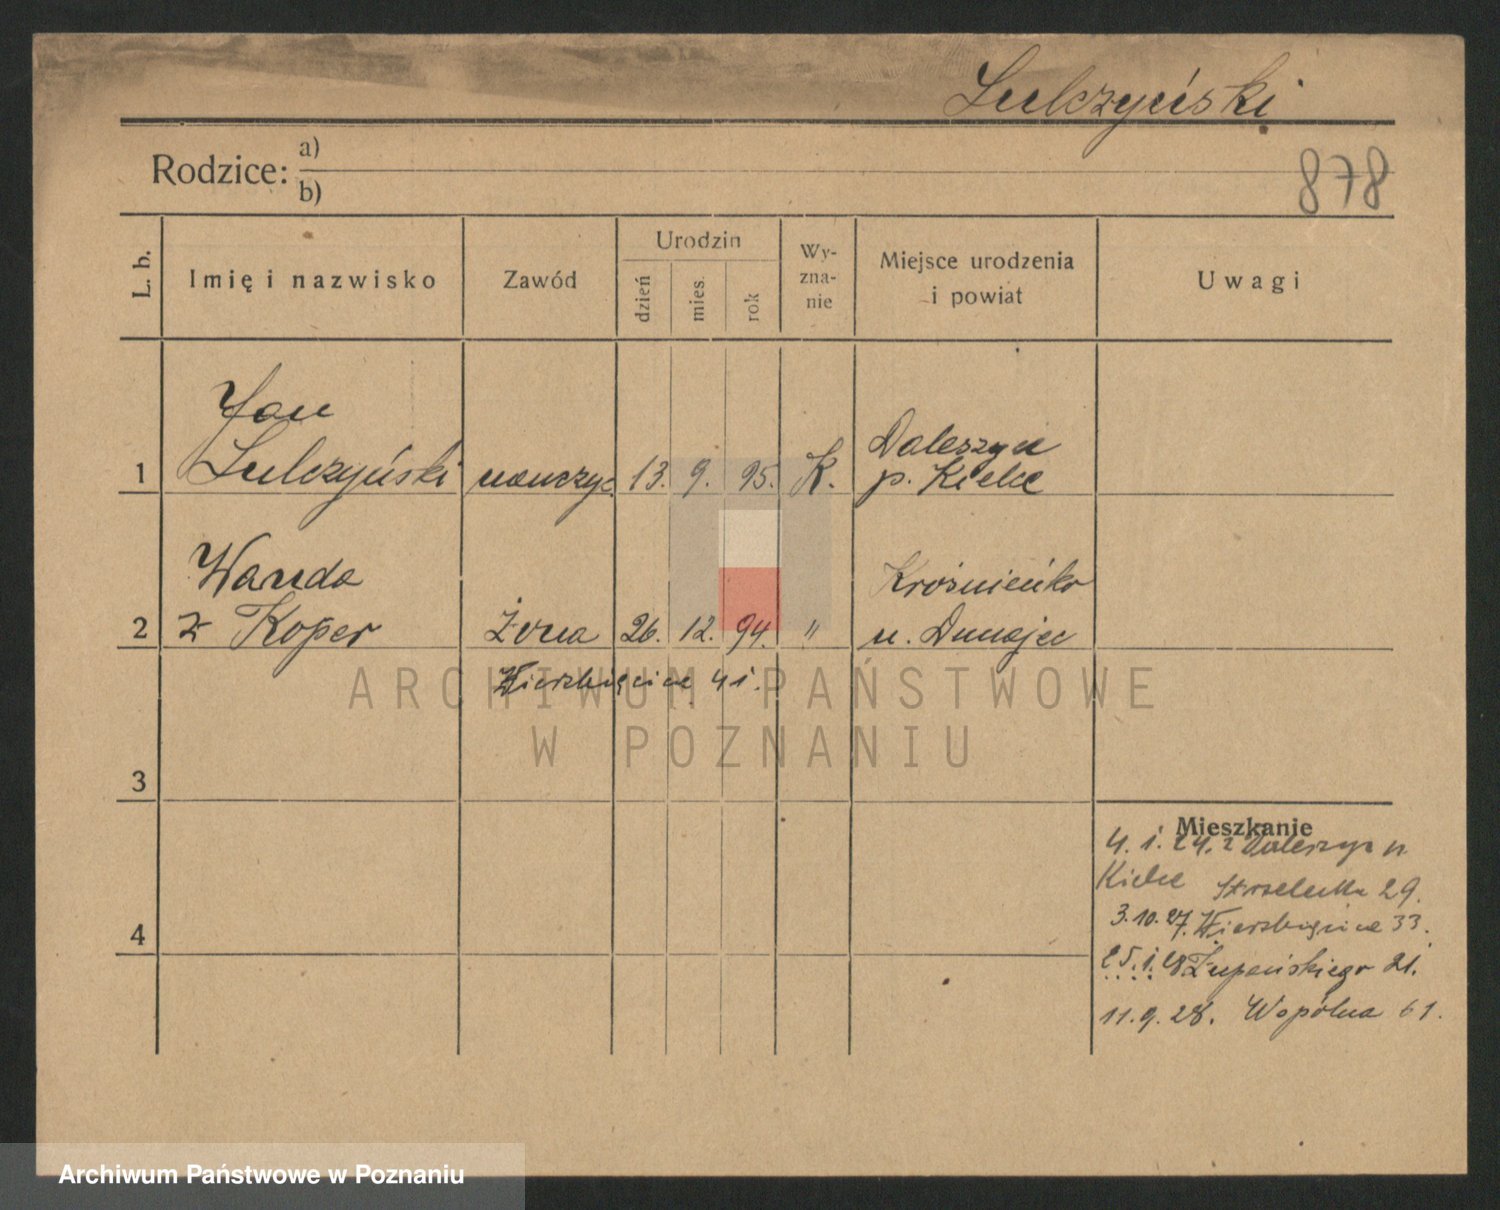 Sulczyński
Rodzice: a)
b)
878
L. b.
Imię i nazwisko
Zawód
Urodzin
dzień
mies.
rok
Wy-
zna-
nie
Miejsce urodzenia
i powiat
Uwagi
Jan
1 Sulczyński nauczyc. 13. 9. 95. K.
Daleszyce
p. Kielce
Wanda
2 z Koper Żona 26. 12. 94. "
Krośnieńko
n. Dunajec
Wierzbięcice 41.
3
Mieszkanie
4. 1. 24. z Daleszyc p
Kielce Strzelecka 29.
3.10.27. Wierzbięcice 33.
4
25.1.28 Żupańskiego 21.
11.9.28. Wspólna 61.
ARCHIWUM PAŃSTWOWE
W POZNANIU
Archiwum Państwowe w Poznaniu